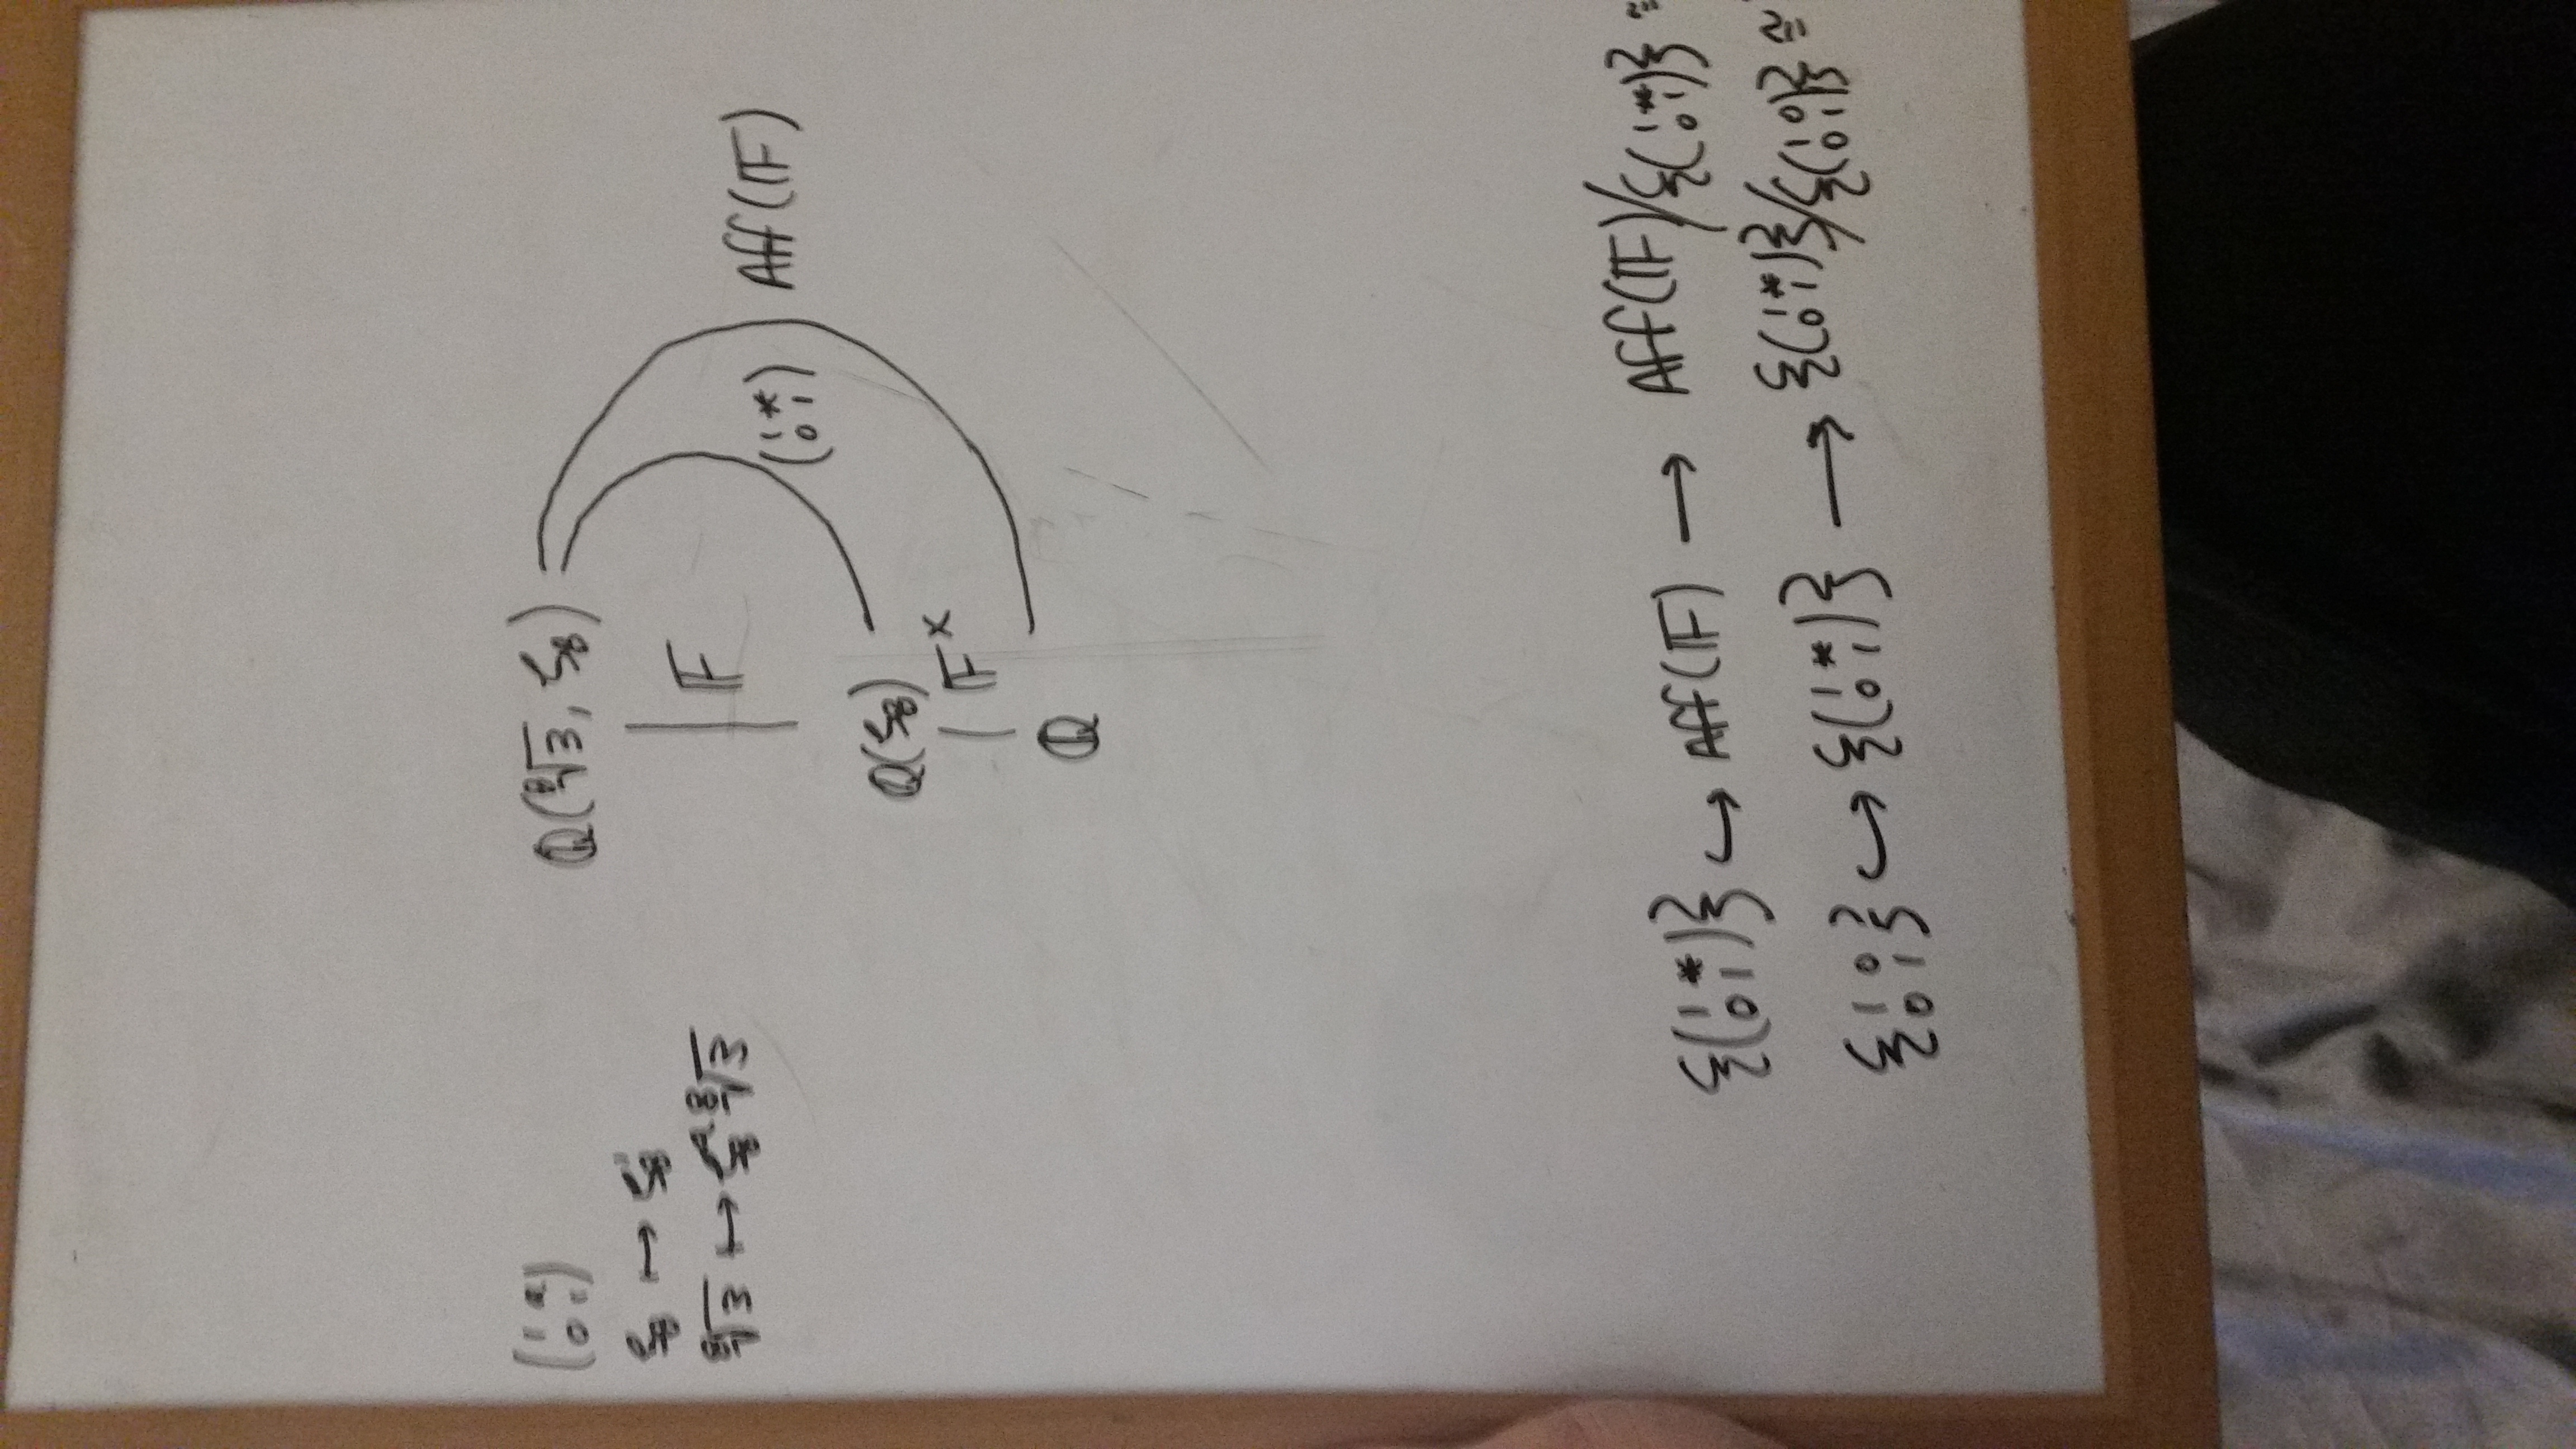 (1 a
0 1)
ζ₈ ↦ ζ₈¹
⁸√3 ↦ ζ₈ᵃ ⁸√3
ℚ(⁸√3, ζ₈)
𝔽
(1 *
0 1)
Aff(𝔽)
ℚ(ζ₈)
𝔽ˣ
ℚ
{(1 * 0 1)} ↪ Aff(𝔽) → Aff(𝔽)/{(1 * 0 1)} ≅
{1 0 0 1} ↪ {(1 * 0 1)} → {(1 * 0 1)}/{(1 0 0 1)} ≅